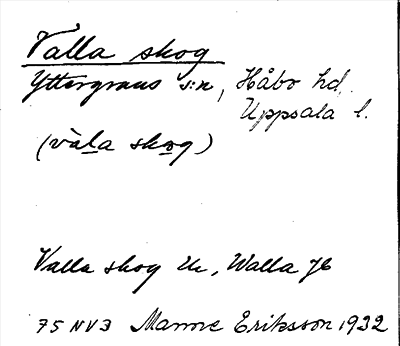 Valla skog
Yttergrans s:n, Håbo hd.
Uppsala l.
(vàla skog)
Valla skog Uc, Walla Jb
75 NV3 Manne Eriksson 1932